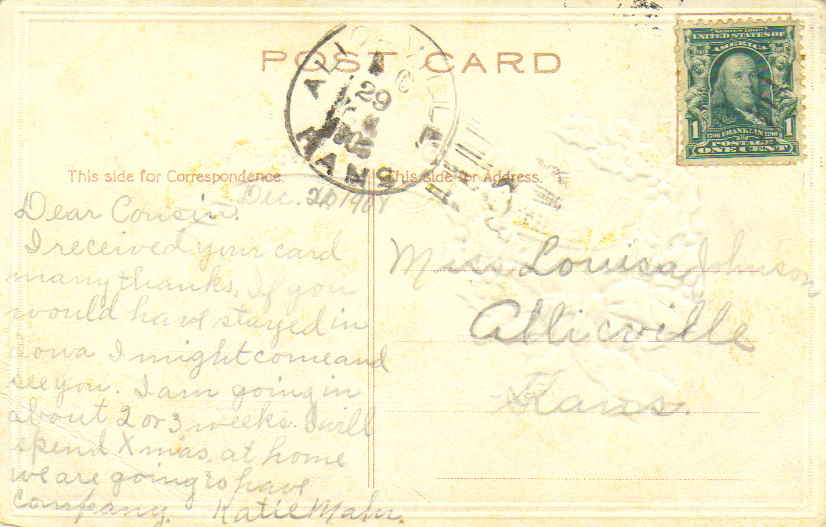 POST CARD
KANS.
29
SERIES 1902
UNITED STATES OF
AMERICA
1 FRANKLIN 1
POSTAGE
ONE CENT
This side for Correspondence.
This side for Address.
Dec. 1907
Dear Cousin.
I received your card
many thanks. If you
would have stayed in
Iowa I might come and
see you. I am going in
about 2 or 3 weeks. I will
spend Xmas at home
we are going to have
company. Katie
Miss Louisa Johnson
Kans.